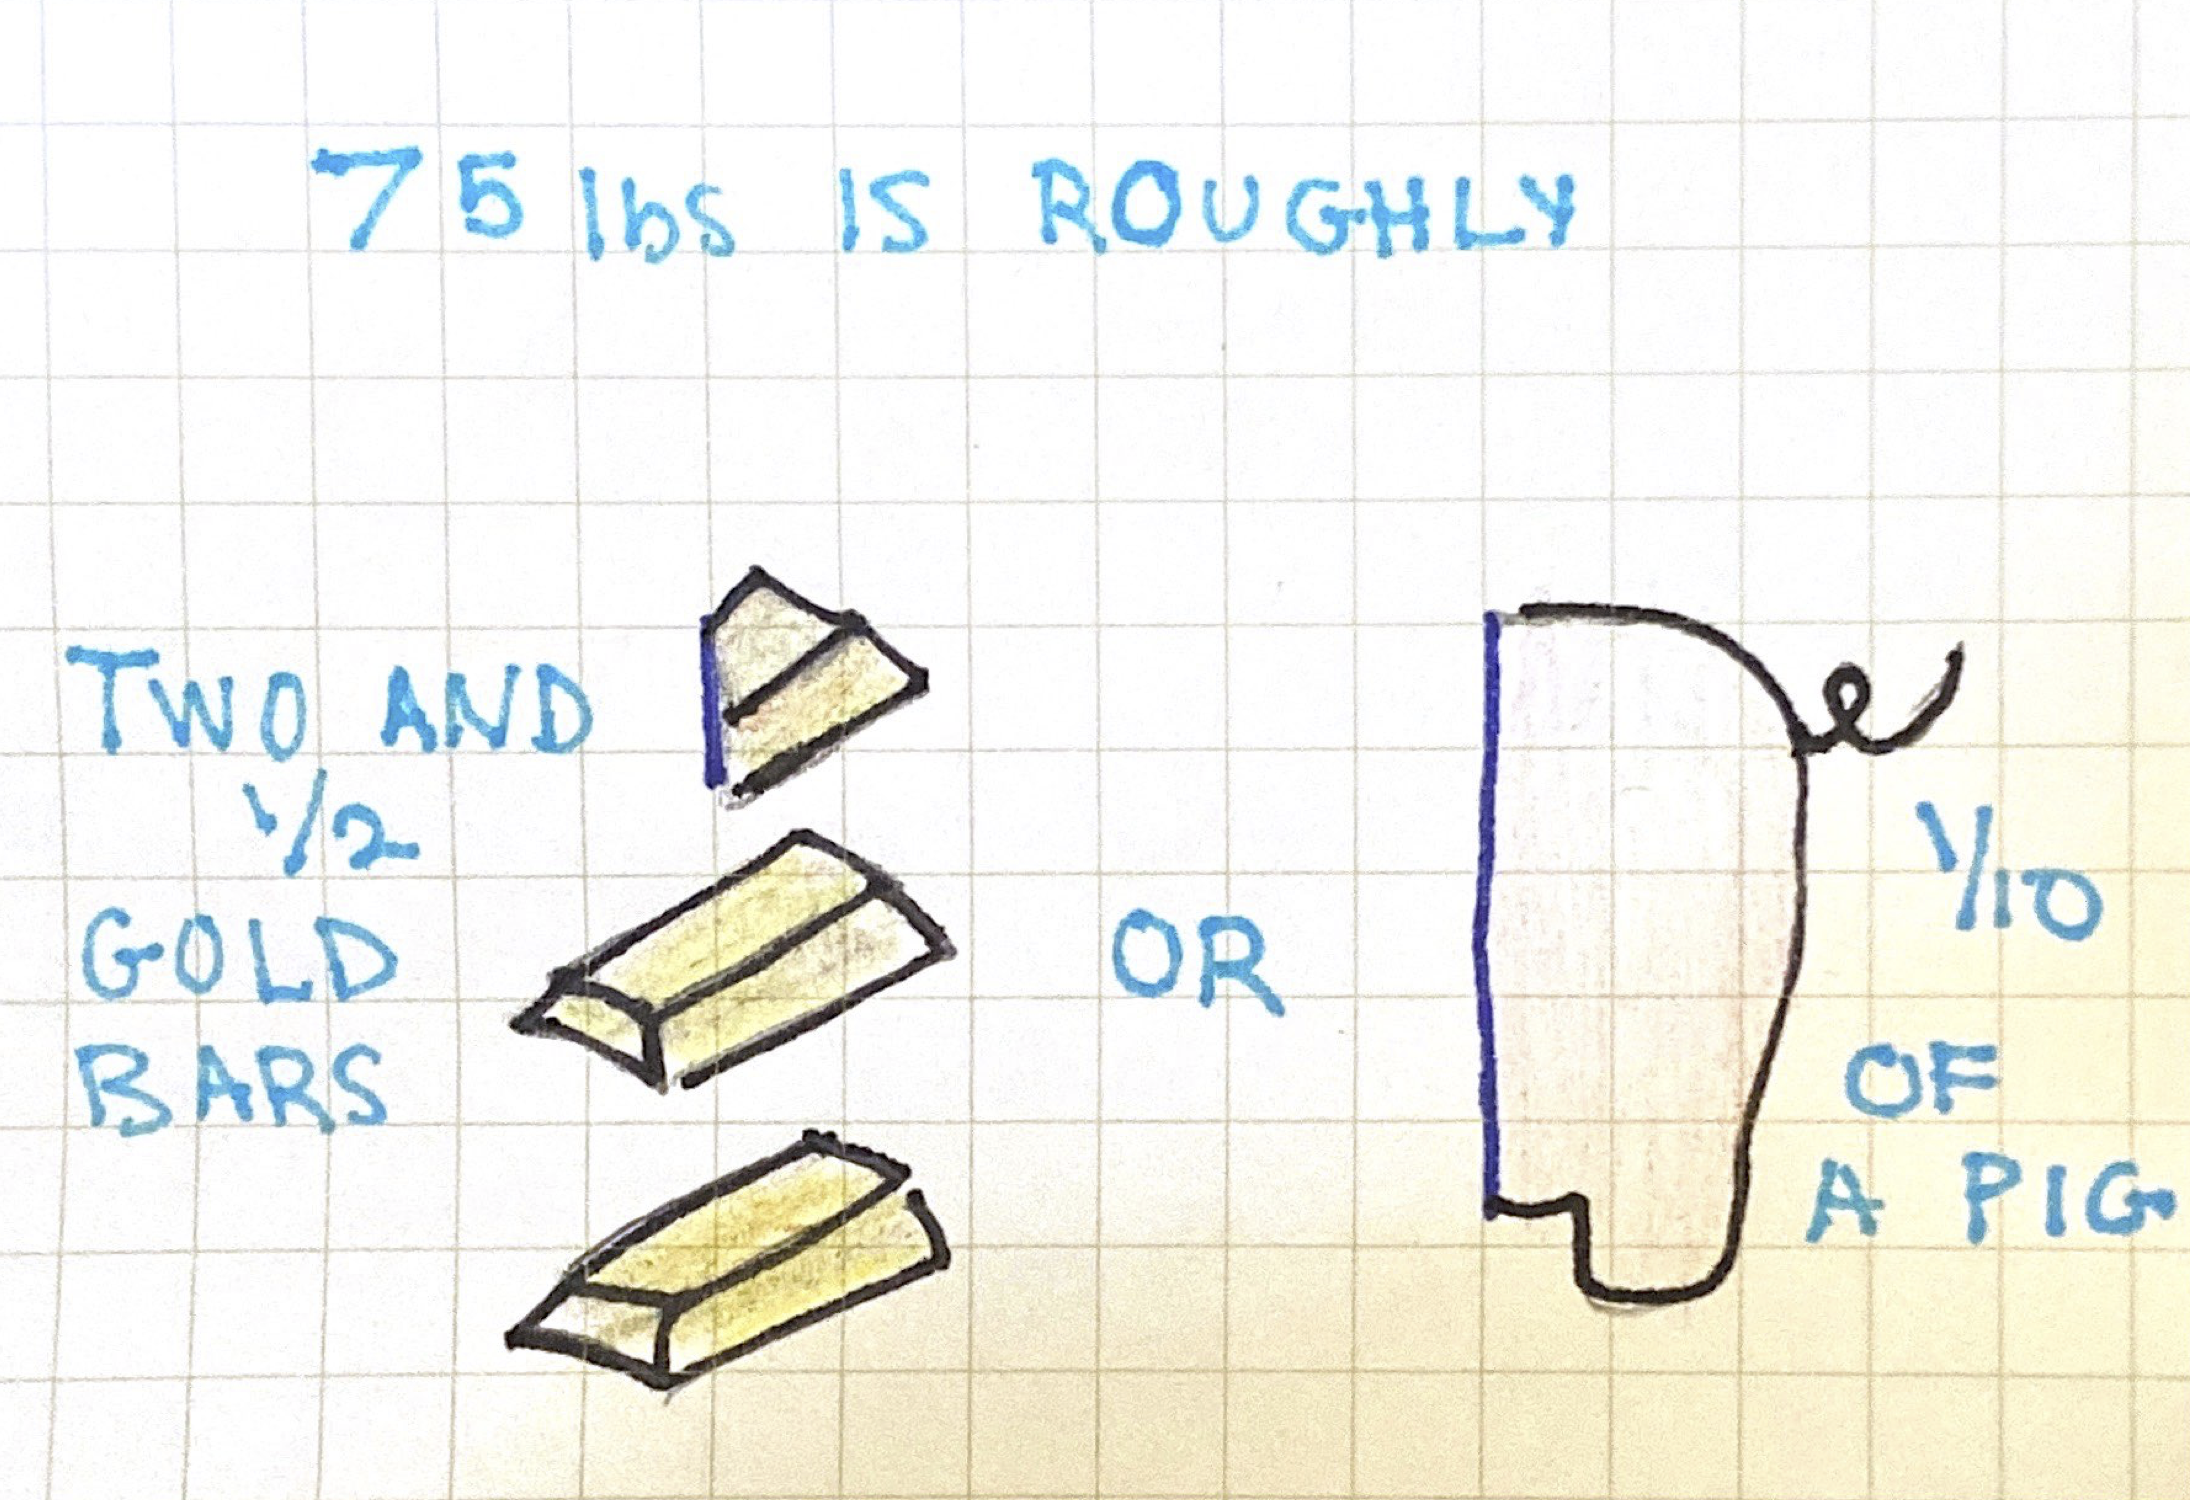 75 lbs IS ROUGHLY
TWO AND
1/2
GOLD
BARS
OR
1/10
OF
A PIG